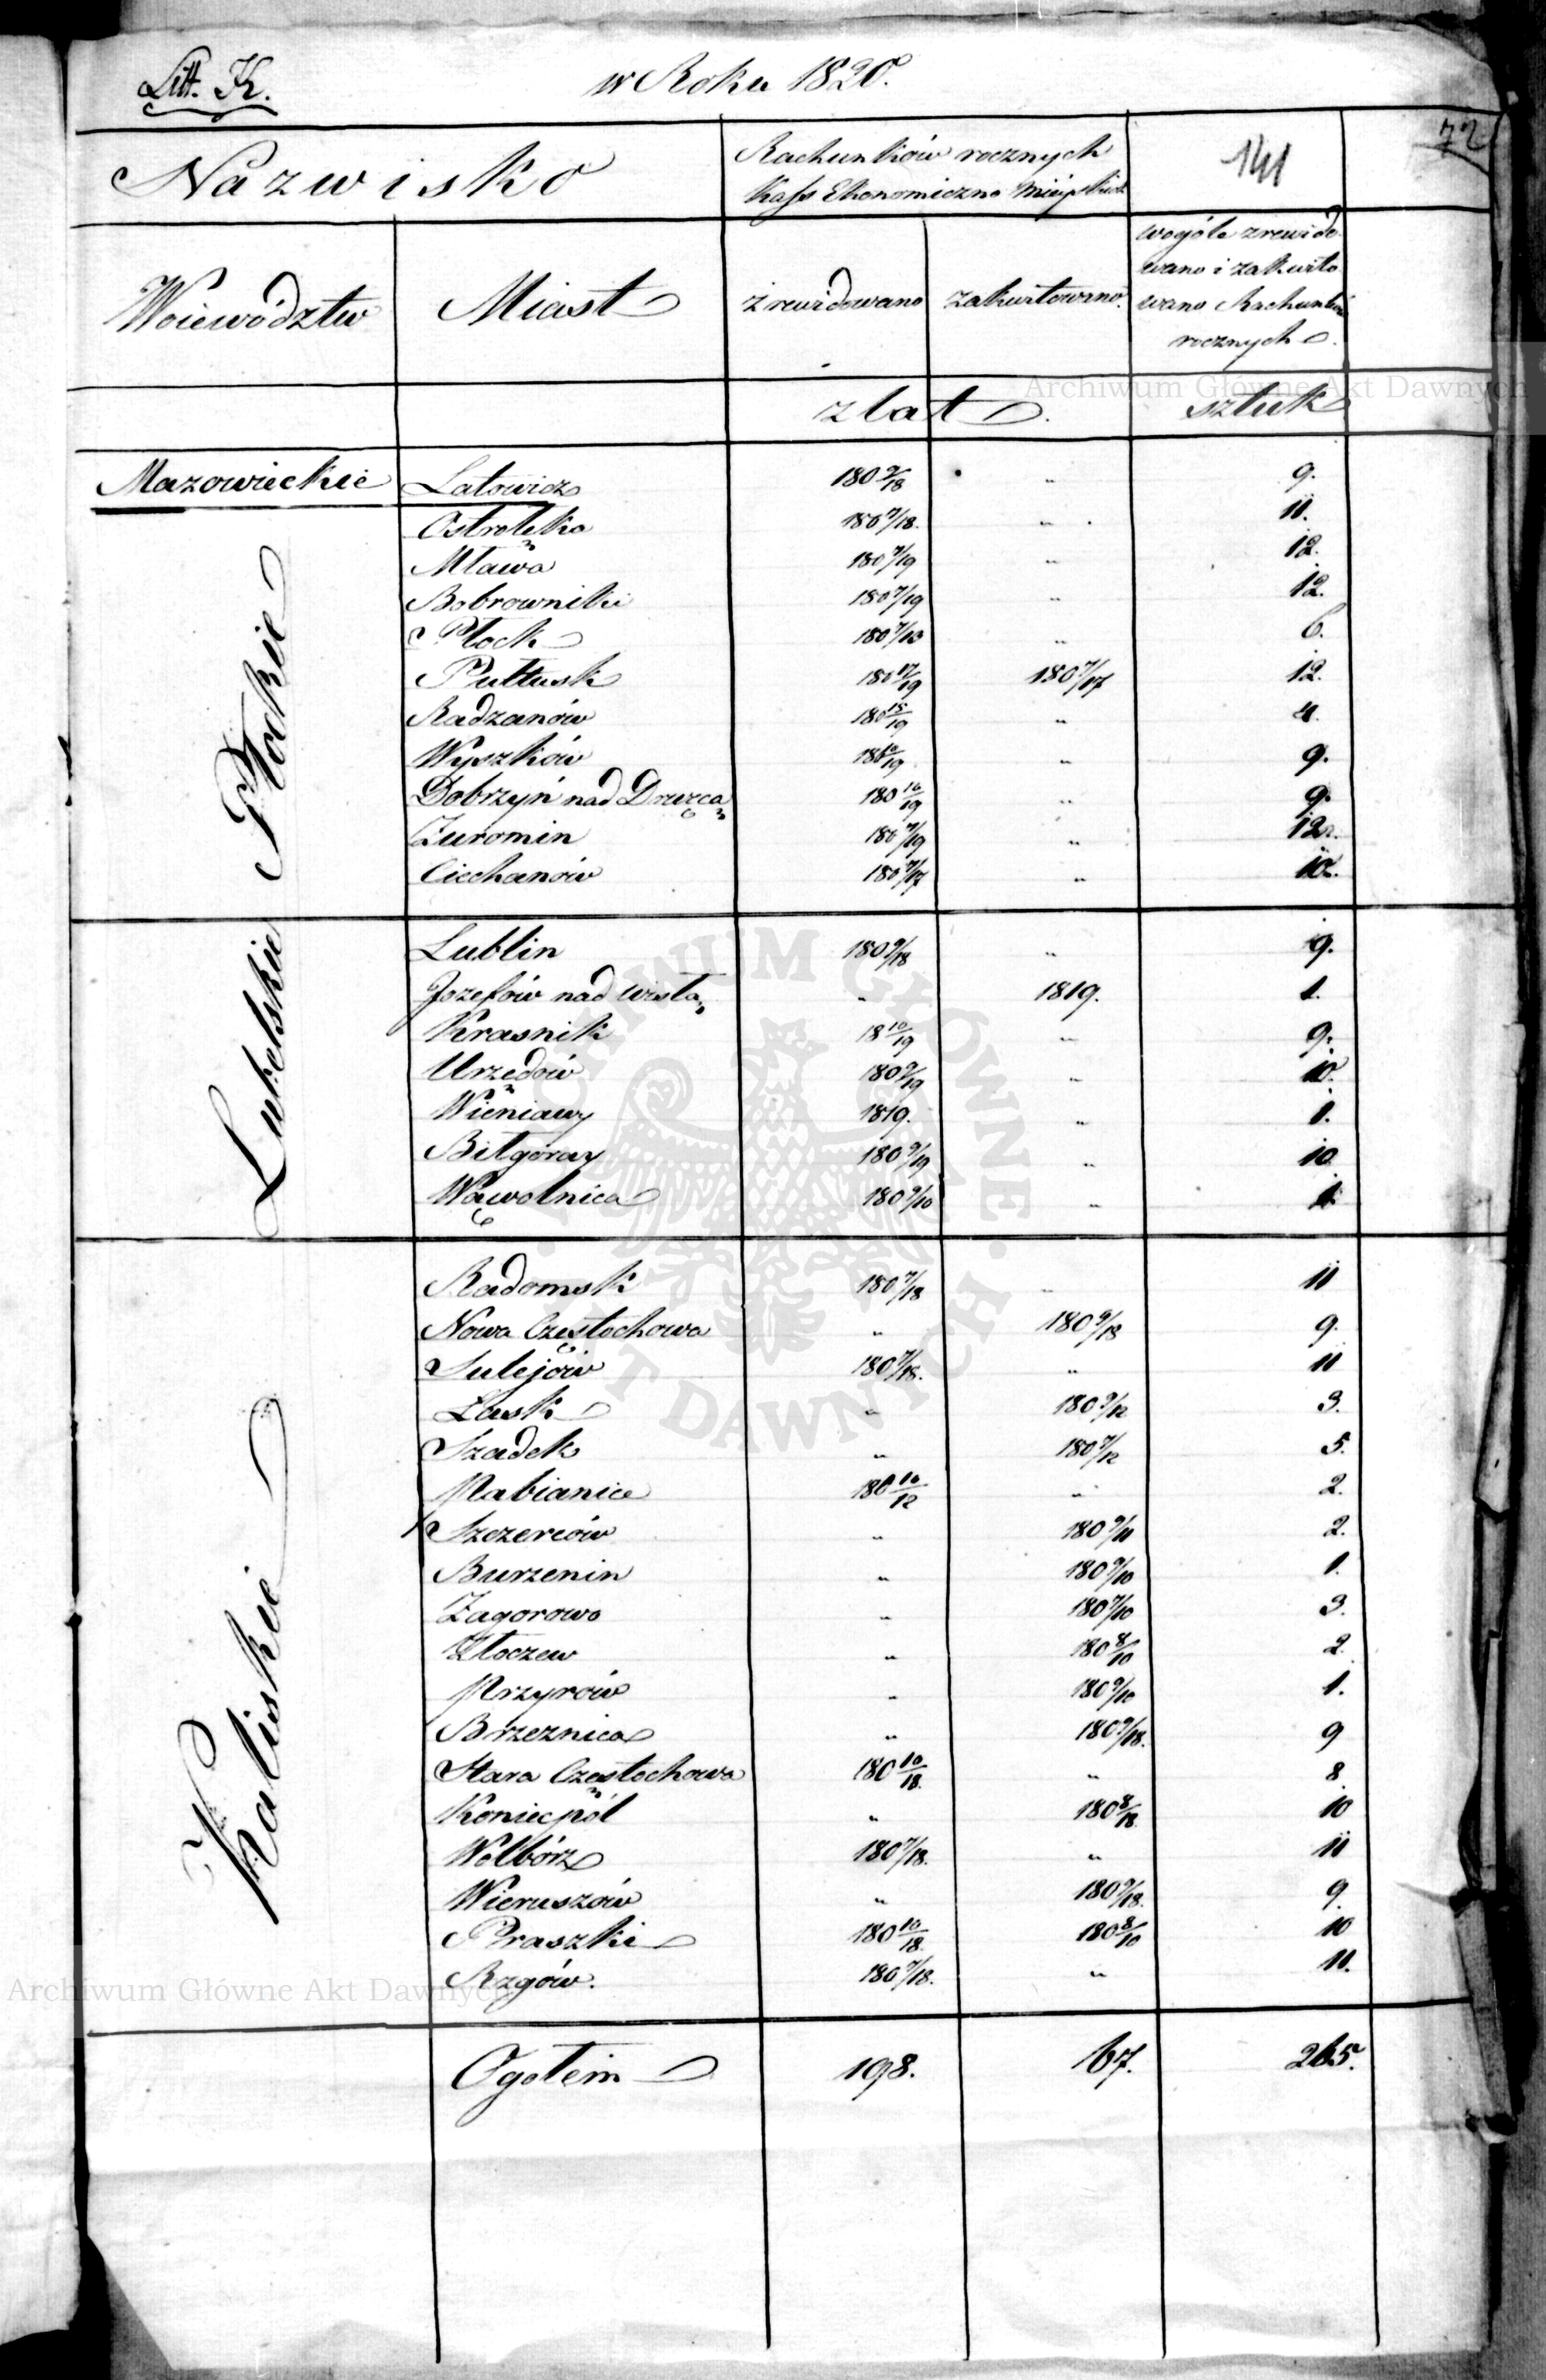 Litt. K.
w Roku 1820.
72
Nazwisko
Rachunków rocznych
Kass Ekonomiczno Mieyskich
141
Woiewództw
Miast
zrewidowano
zakwitowano.
wogóle zrewido
wano i zakwito
wano Rachunków
rocznych.
z lat
sztuk
Mazowieckie Latowicz 180 9/18 " 9.
Płockie
Ostrołęka 180 7/18. " 11.
Mława 180 7/19 " 12.
Bobrowniki 180 7/19 " 12.
Płock 180 7/13 " 6.
Pułtusk 180 17/19 180 7/17 12.
Radzanów 180 15/19 " 4.
Wyszków 180 10/19 " 9.
Dobrzyń nad Drwęcą 180 10/19 " 9.
Żuromin 180 7/19 " 12.
Ciechanów 180 7/17 " 10.
Lubelskie
Lublin 180 9/18 " 9.
Jozefów nad Wisłą " 1819. 1.
Krasnik 18 10/19 " 9.
Urzędów 180 9/19 " 10.
Wieniawy 1819. " 1.
Biłgoray 180 9/19 " 10
Wąwolnica 180 9/10 " 1.
Kaliskie
Radomsk 180 7/18 " 11
Nowa Częstochowa " 180 9/18 9.
Sulejów 180 7/18. " 11
Łask " 180 9/12 3.
Szadek " 180 7/12 5.
Pabianice 180 10/12 " 2.
Szczerców " 180 9/11 2.
Burzenin " 180 9/10 1.
Zagorowo " 180 7/10 3.
Złoczew " 180 8/10 2.
Przyrów " 180 9/10 1.
Brzeznica " 180 9/18. 9
Stara Częstochowa 180 10/18. " 8
Koniecpól " 180 8/18. 10
Wolbórz 180 7/18. " 11
Wieruszów " 180 9/18. 9.
Praszki 180 10/18. 180 8/10 10
Rzgów. 180 7/18. " 11.
Ogółem 198. 67. 265.
Archiwum Główne Akt Dawnych
ARCHIWUM GŁÓWNE AKT DAWNYCH
Archiwum Głowne Akt Dawnych